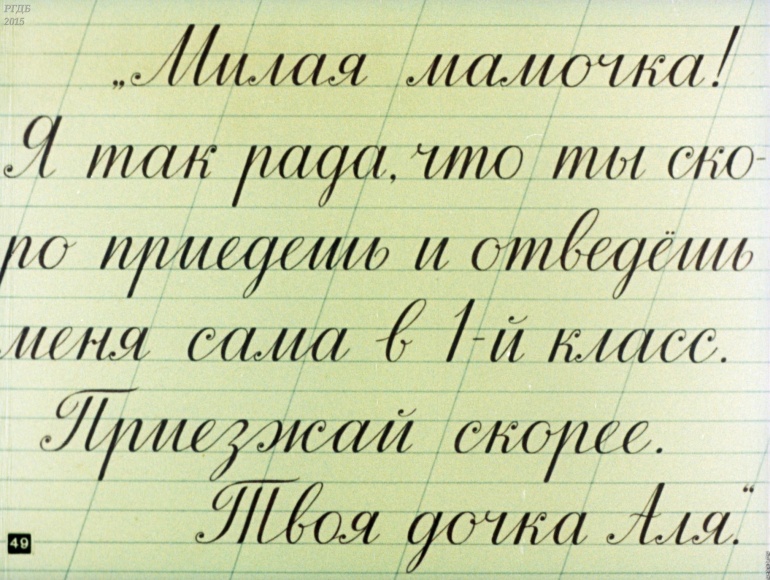 РГДБ
2015
„Милая мамочка!
Я так рада, что ты ско-
ро приедешь и отведёшь
меня сама в 1-й класс.
Приезжай скорее.
Твоя дочка Аля.“
49